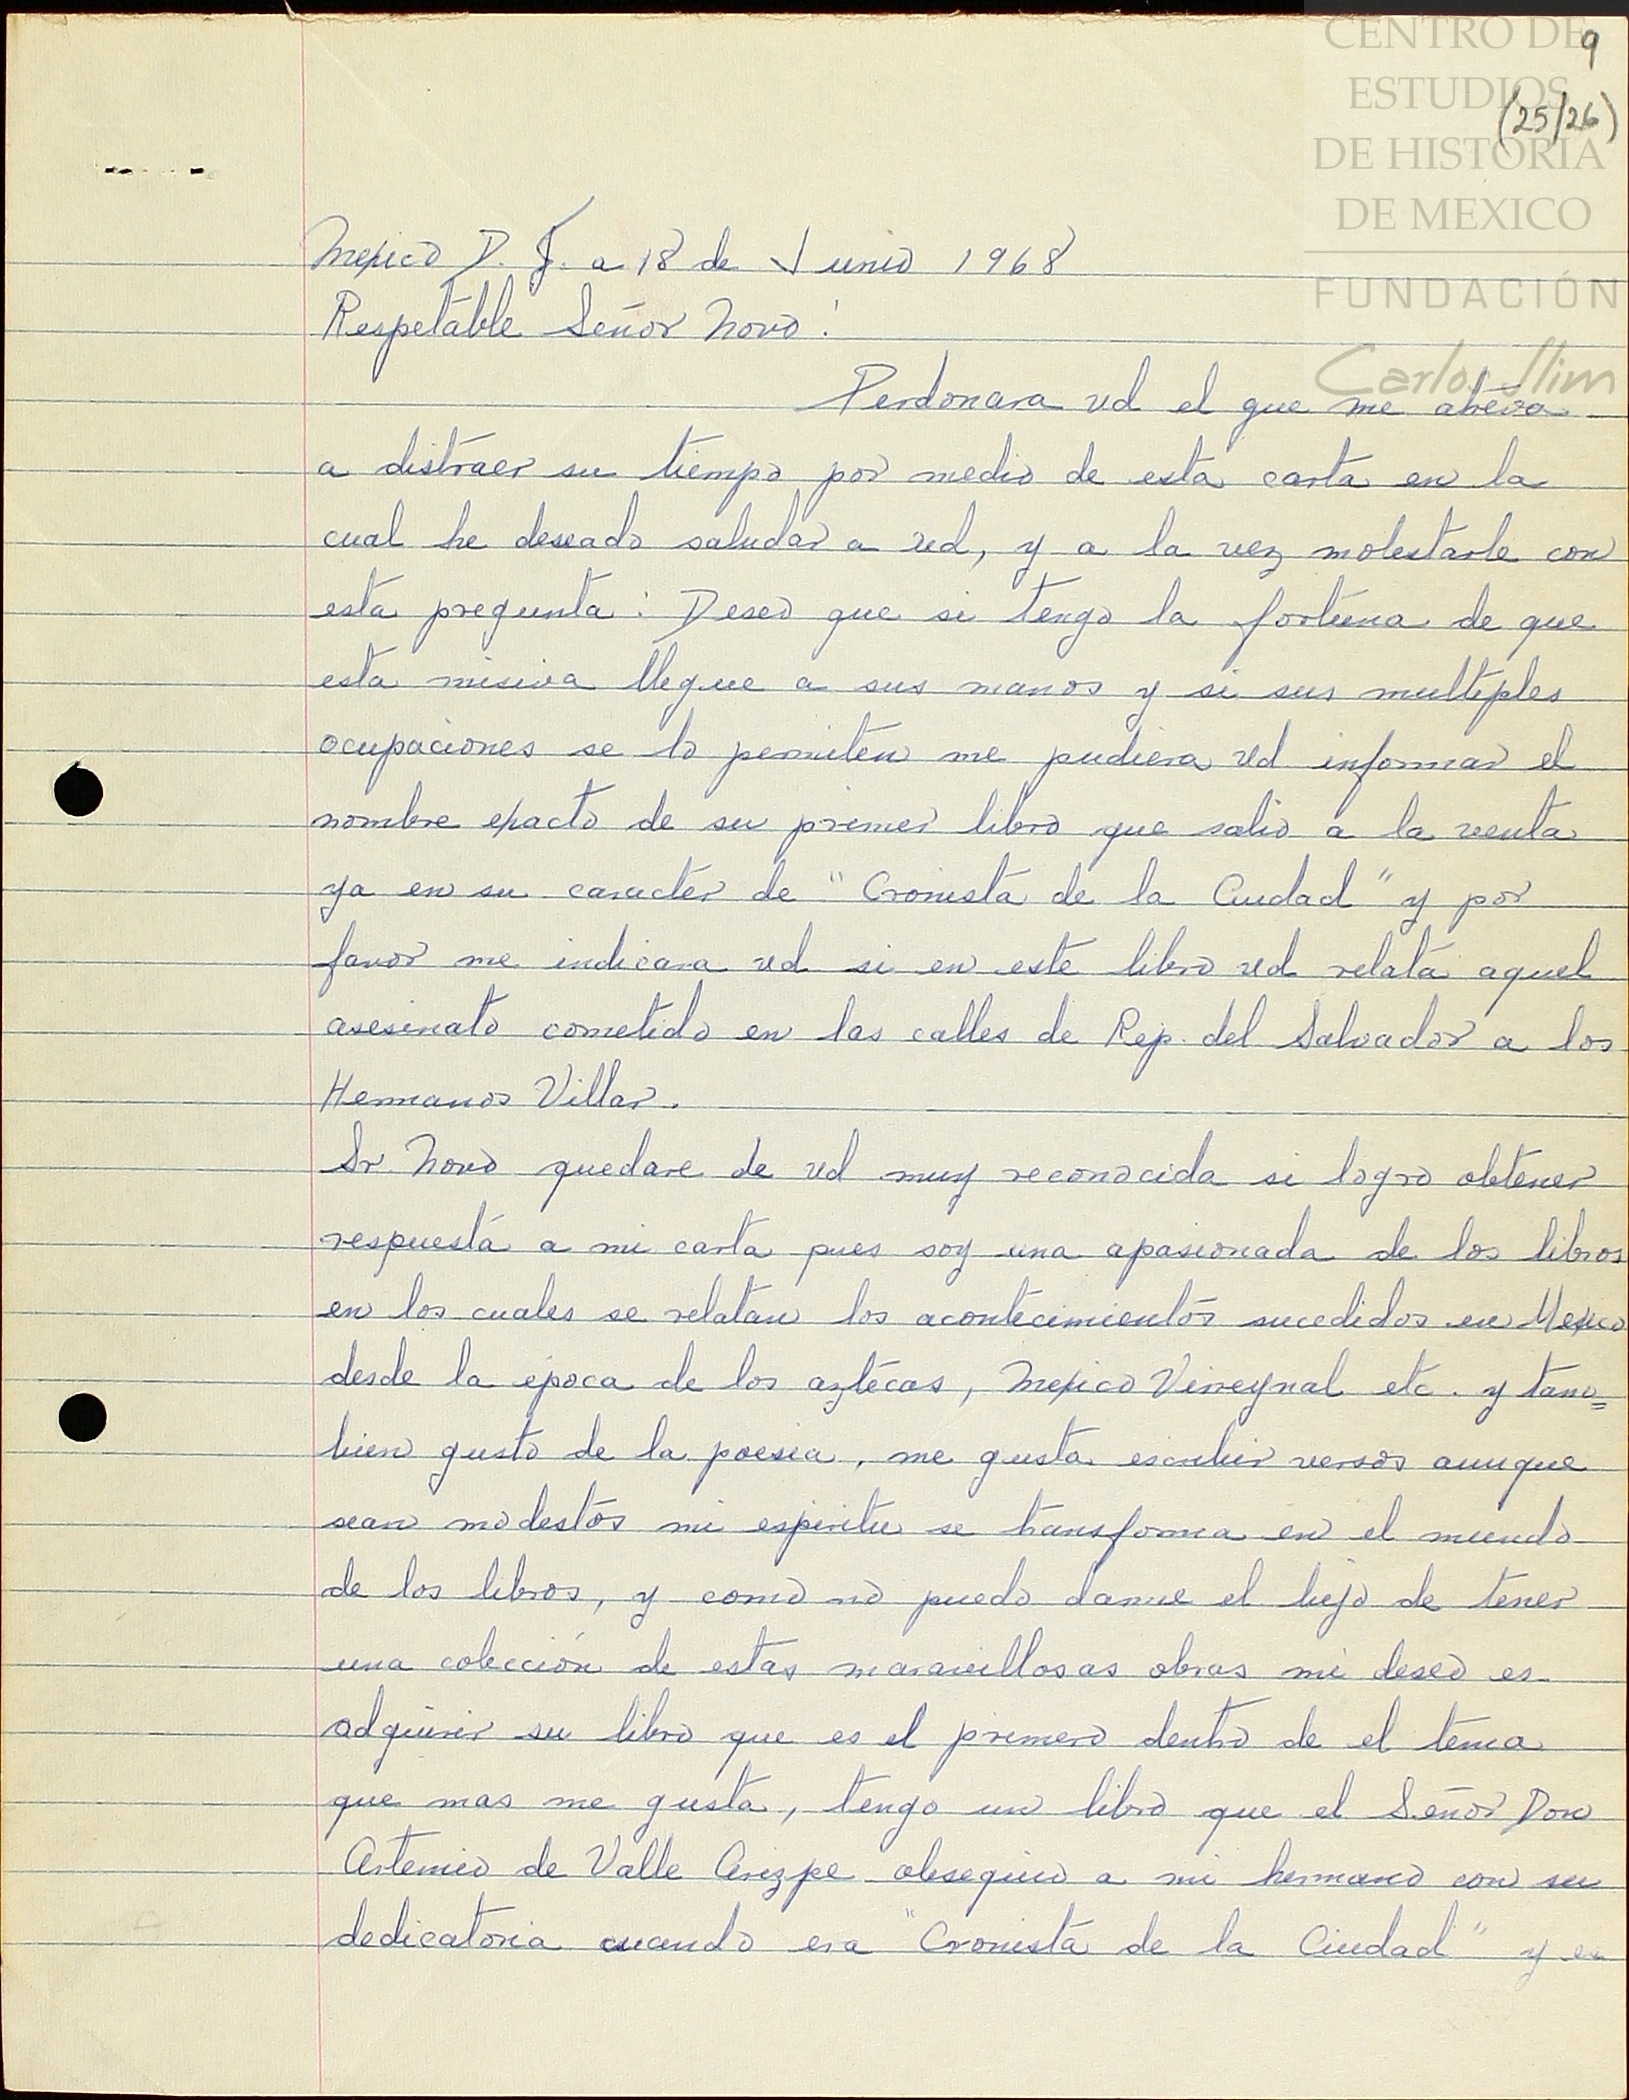 CENTRO DE
ESTUDIOS
DE HISTORIA
DE MEXICO
FUNDACIÓN
Carlos Slim
9
(25/26)
Mexico D. F. a 18 de Junio 1968
Respetable Señor Novo:
Perdonara ud el que me atreva
a distraer su tiempo por medio de esta carta en la
cual he deseado saludar a ud, y a la vez molestarle con
esta pregunta: Deseo que si tengo la fortuna de que
esta misiva llegue a sus manos y si sus multiples
ocupaciones se lo permiten me pudiera ud informar el
nombre exacto de su primer libro que salio a la venta
ya en su caracter de "Cronista de la Ciudad" y por
favor me indicara ud si en este libro ud relata aquel
asesinato cometido en las calles de Rep. del Salvador a los
Hermanos Villar.
Sr Novo quedare de ud muy reconocida si logro obtener
respuesta a mi carta pues soy una apasionada de los libros
en los cuales se relatan los acontecimientos sucedidos en Mexico
desde la época de los aztécas, Mexico Virreynal etc. y tam=
bien gusto de la poesia, me gusta escribir versos aunque
sean modestos mi espiritu se transforma en el mundo
de los libros, y como no puedo darme el lujo de tener
una colección de estas maravillosas obras mi deseo es
adquirir su libro que es el primero dentro de el tema
que mas me gusta, tengo un libro que el Señor Don
Artemio de Valle Arizpe obsequio a mi hermano con su
dedicatoria cuando era "Cronista de la Ciudad" y es